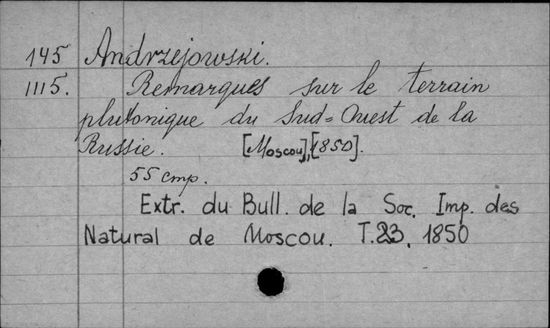 145 Andrzejowski.
1115. Remarques sur le terrain
plutonique du Sud=Ouest de la
Russie. [Moscou], [1850].
55 стр.
Extr. du Bull. de la Soc. Imp. des
Natural de Moscou. T.23, 1850